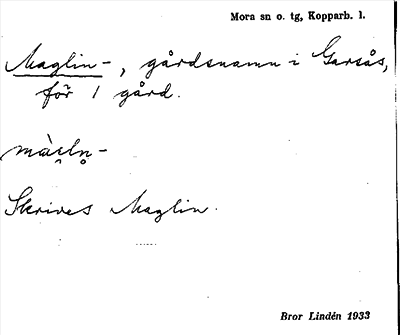 Mora sn o. tg, Kopparb. l.
Maglin-, gårdsnamn i Garsås,
för 1 gård.
Skrives Maglin.
Bror Lindén 1933